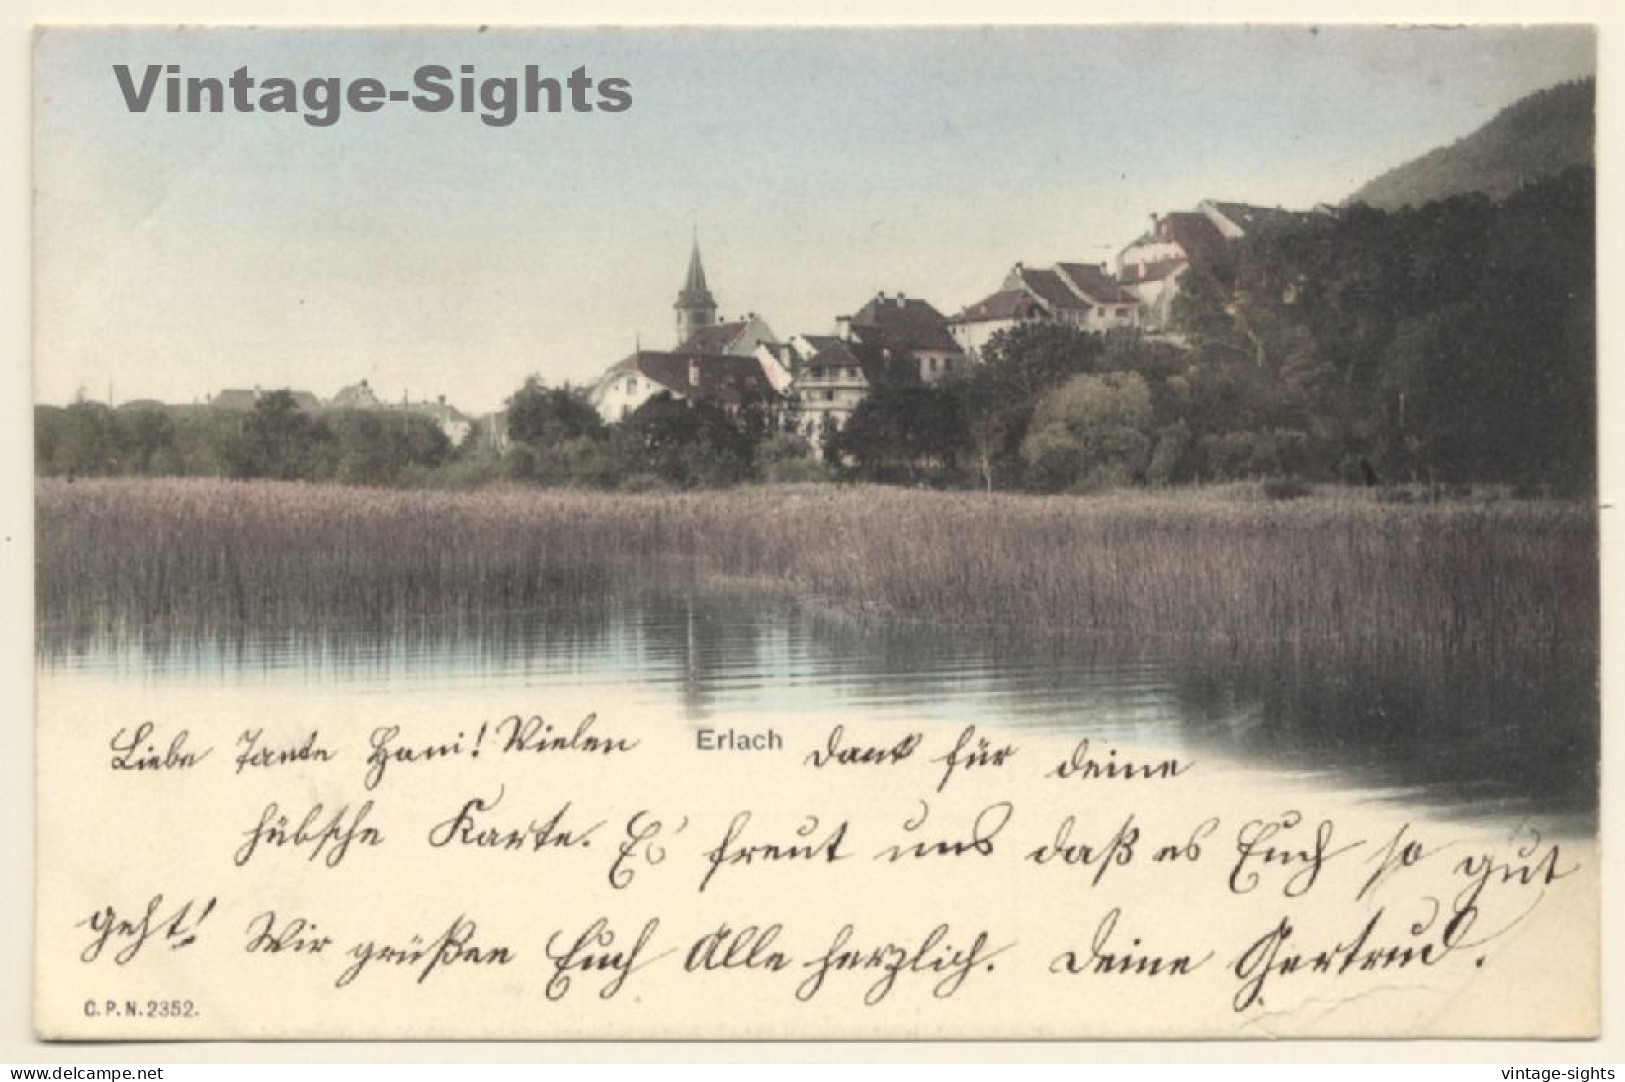 Vintage-Sights
Liebe Tante Hani! Vielen Erlach Dank für deine
hübsche Karte. Es freut uns daß es Euch so gut
geht! Wir grüßen Euch Alle herzlich. Deine Gertrud.
C.P.N. 2352.
delcampe.net
vintage-sights